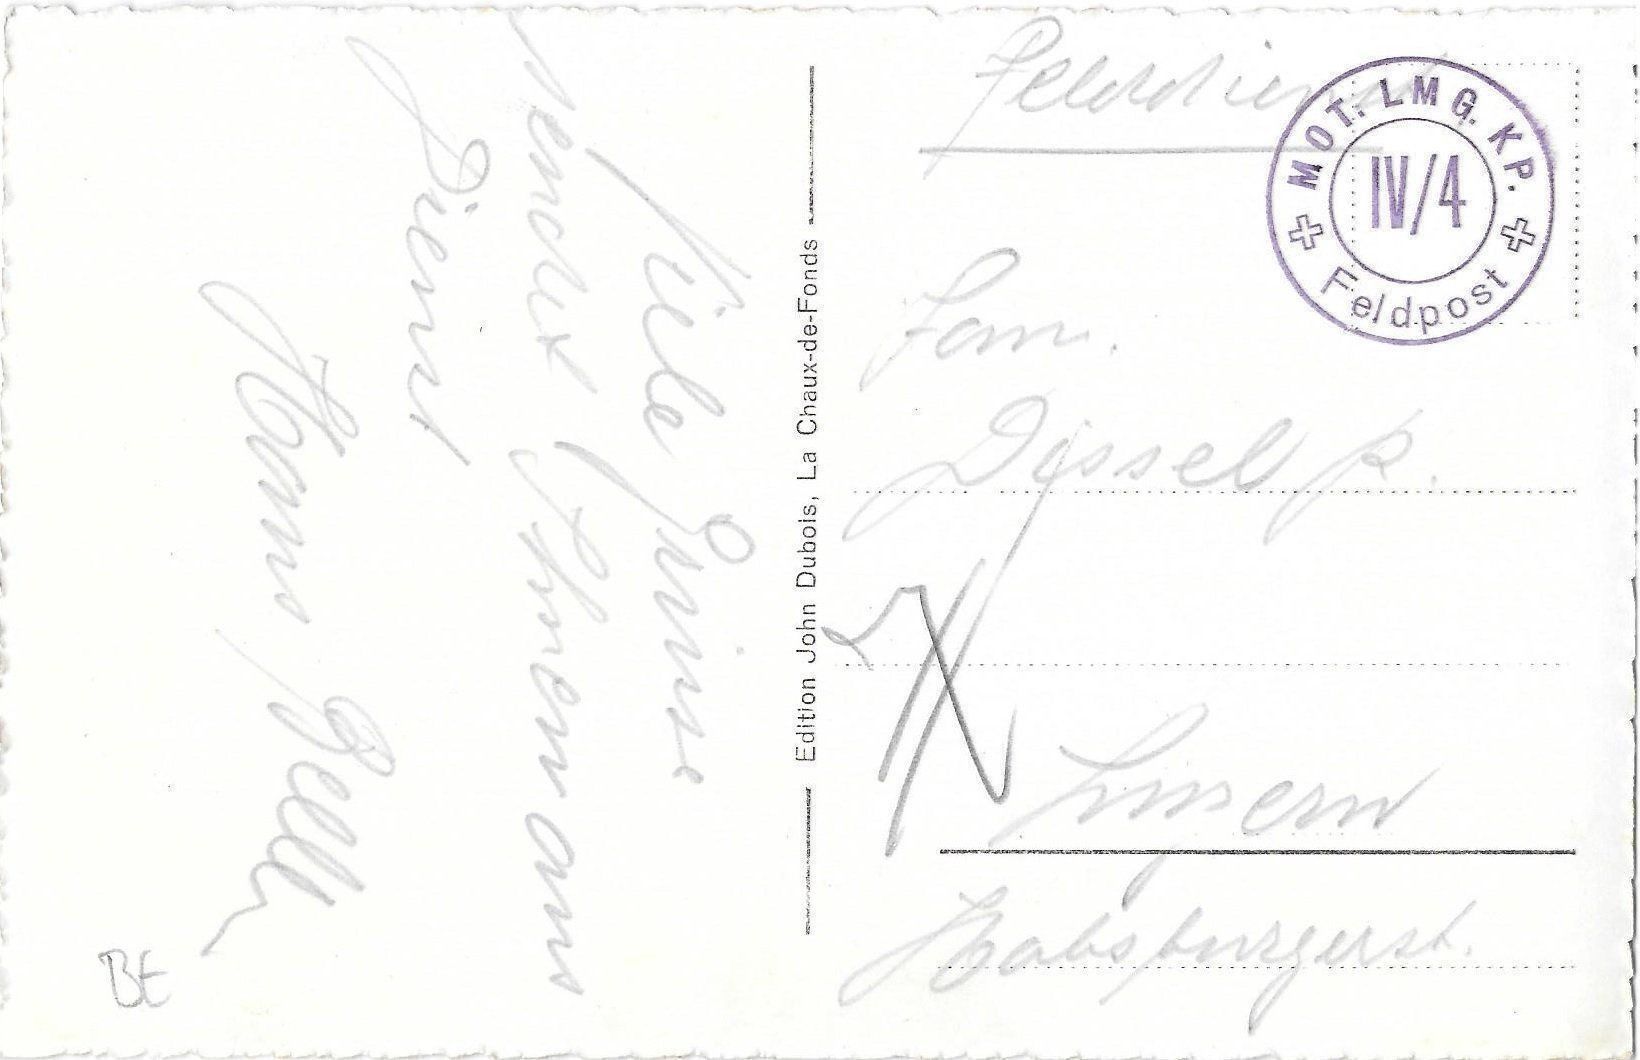 Viele Grüsse
sendet Ehrenmann
Dienst
Hans Belli
BE
Edition John Dubois, La Chaux-de-Fonds
Felddienst
MOT. LMG. KP.
IV/4
Feldpost
Fam.
Disselp.
Luzern
Habsburgerst.